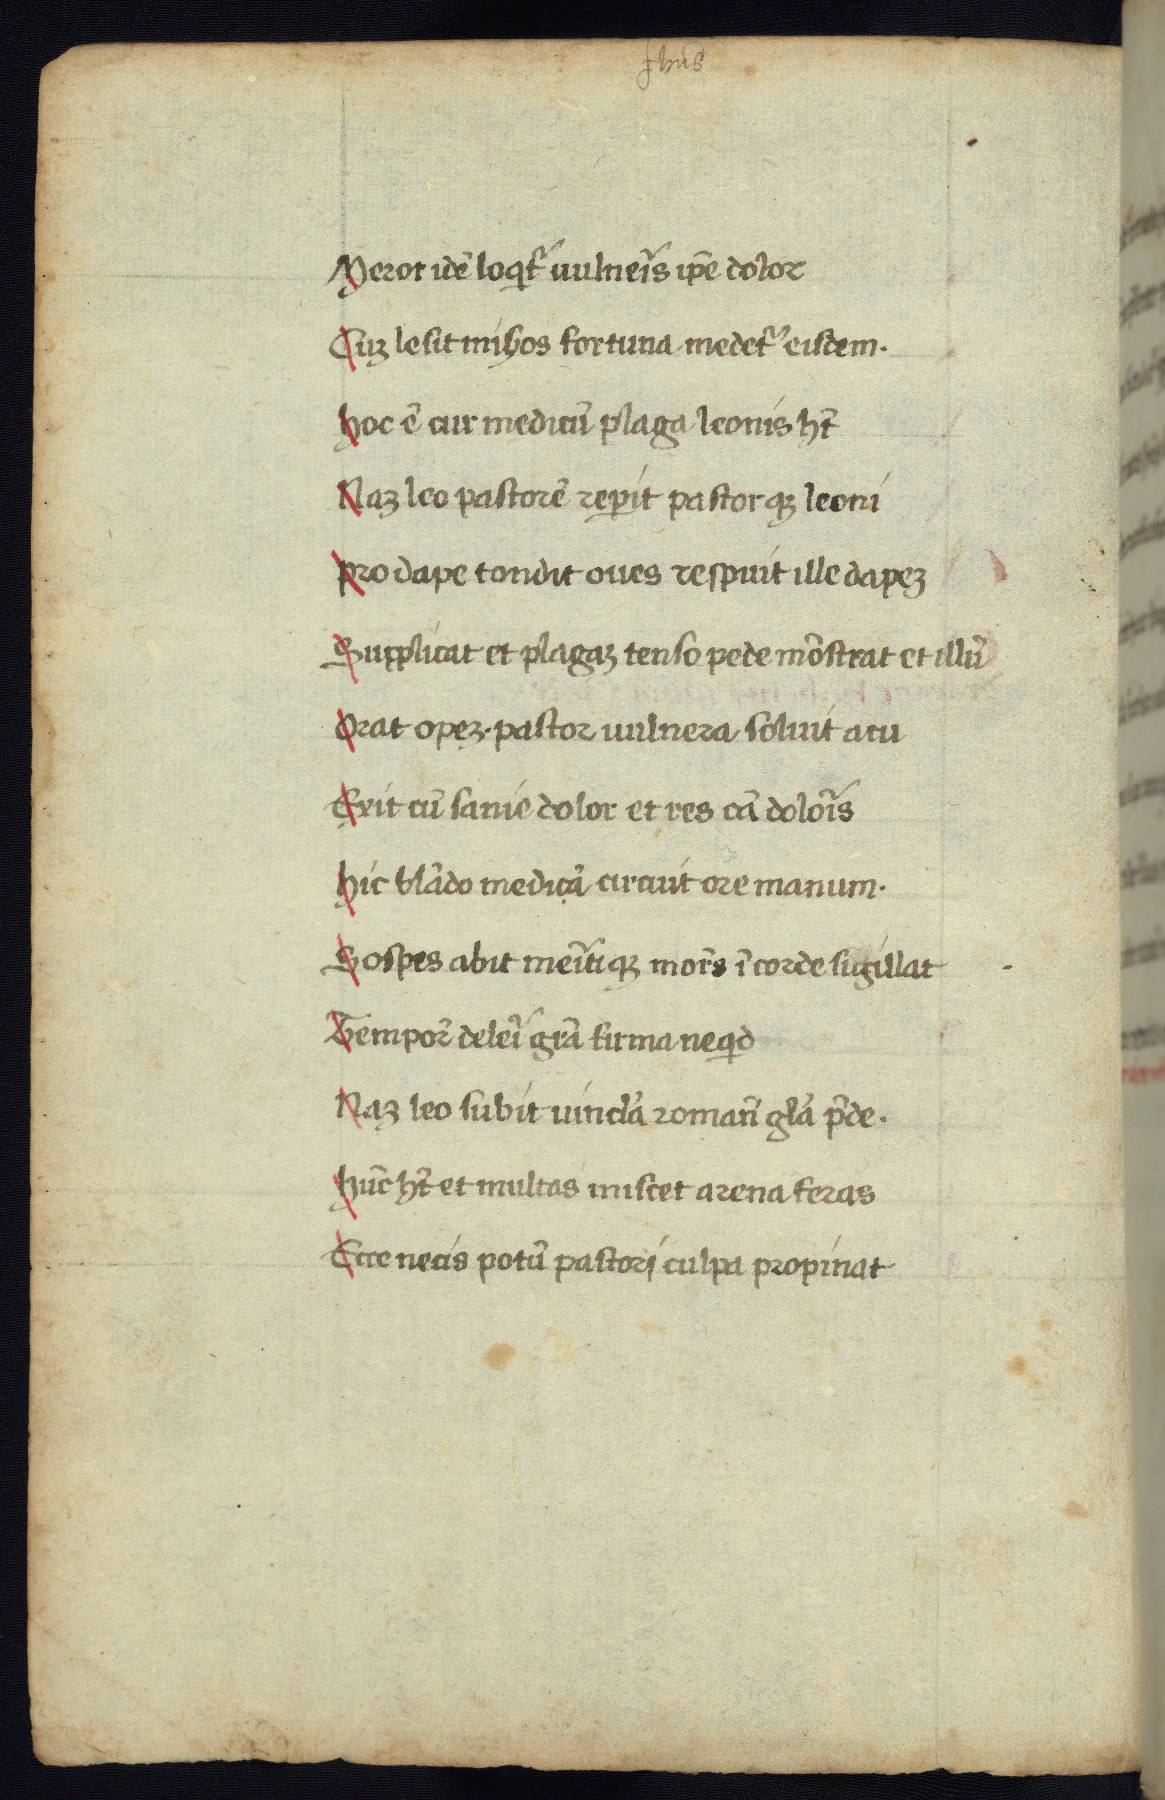 Jhus
Meror idē loqt᷑ uulneīs ip̄e dolor
Cuꝫ lesit mihos fortuna medet᷑ eisdem.
hoc ē cur medicū plaga leonis ht̄
Naꝫ leo pastorē reꝑit pastorqꝫ leoni
pro dape tondit oues respuit ille dapeꝫ
Supplicat et plagaꝫ tenso pede mōstrat et illū
Orat opeꝫ. pastor uulnera soluit acu
Exit cū sanie dolor et res cā doloīs
hic blādo medicā circuit ore manum.
Sospes abit meītiqꝫ mor̄s ī corde sigillat
Tempor̄ deleī grā firma neqid
Naꝫ leo subit uincla romañ glā p̄de.
hūc ht̄ et multas miscet arena feras
Ecce necis potū pastori culpa propinat